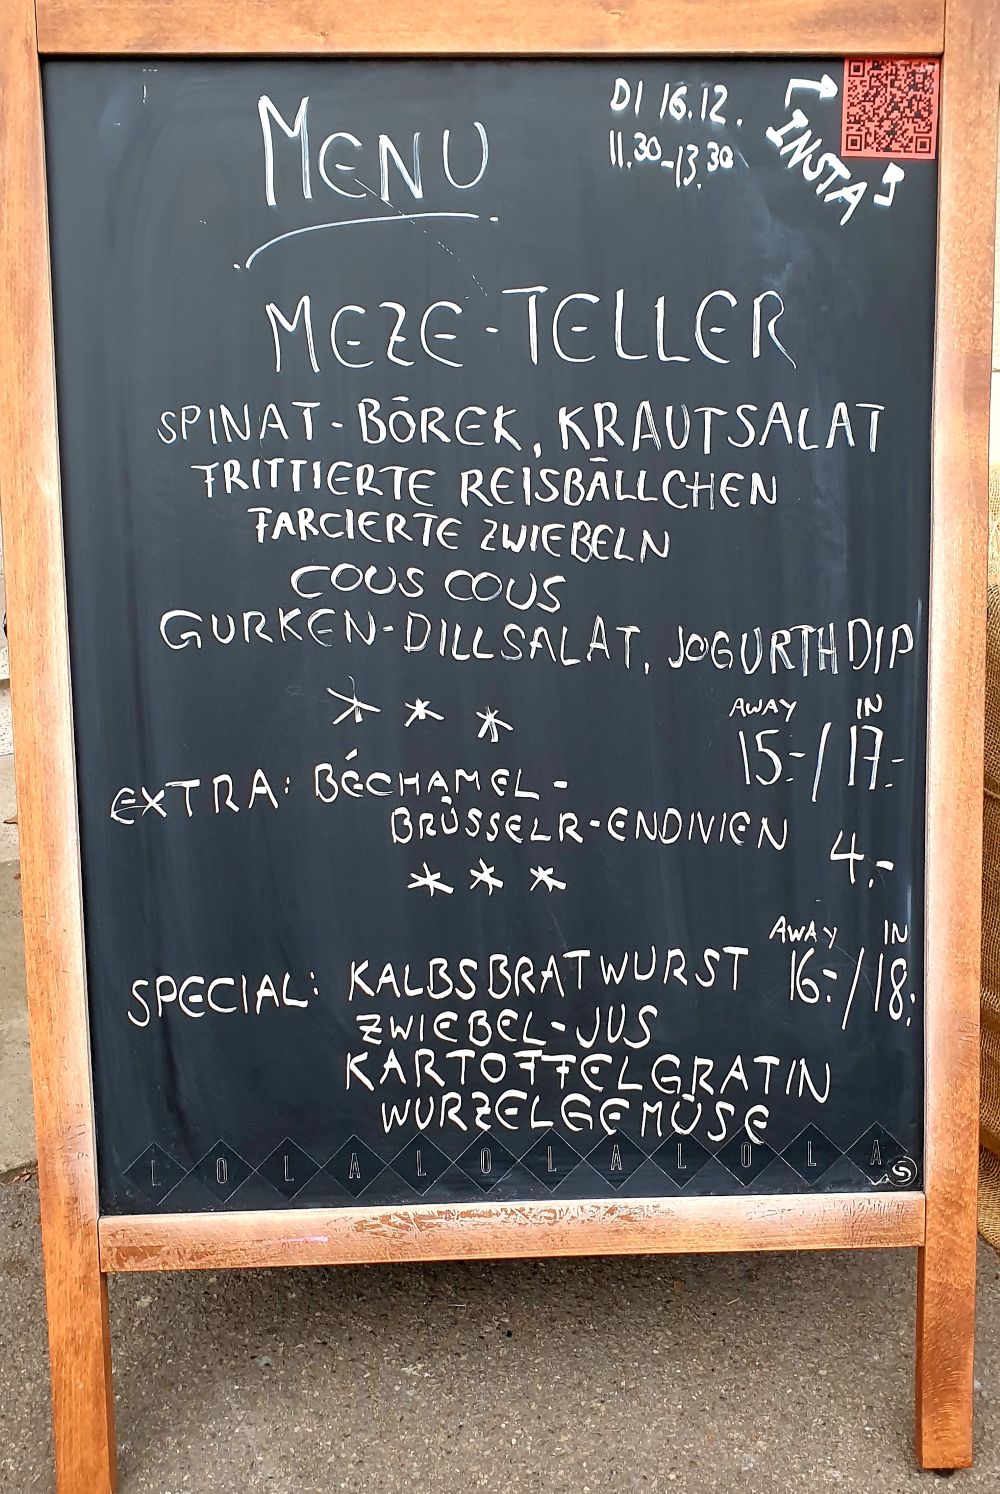 MENU
DI 16.12.
11.30-13.30
INSTA
MEZE-TELLER
SPINAT-BÖREK, KRAUTSALAT
FRITTIERTE REISBÄLLCHEN
FARCIERTE ZWIEBELN
COUS COUS
GURKEN-DILLSALAT, JOGURTH DIP
*** AWAY IN
15.-/17.-
EXTRA: BÉCHAMEL-
BRÜSSELR-ENDIVIEN 4.-
***
AWAY IN
SPECIAL: KALBSBRATWURST 16.-/18.
ZWIEBEL-JUS
KARTOFFELGRATIN
WURZELGEMÜSE
LOLALOLALOLA